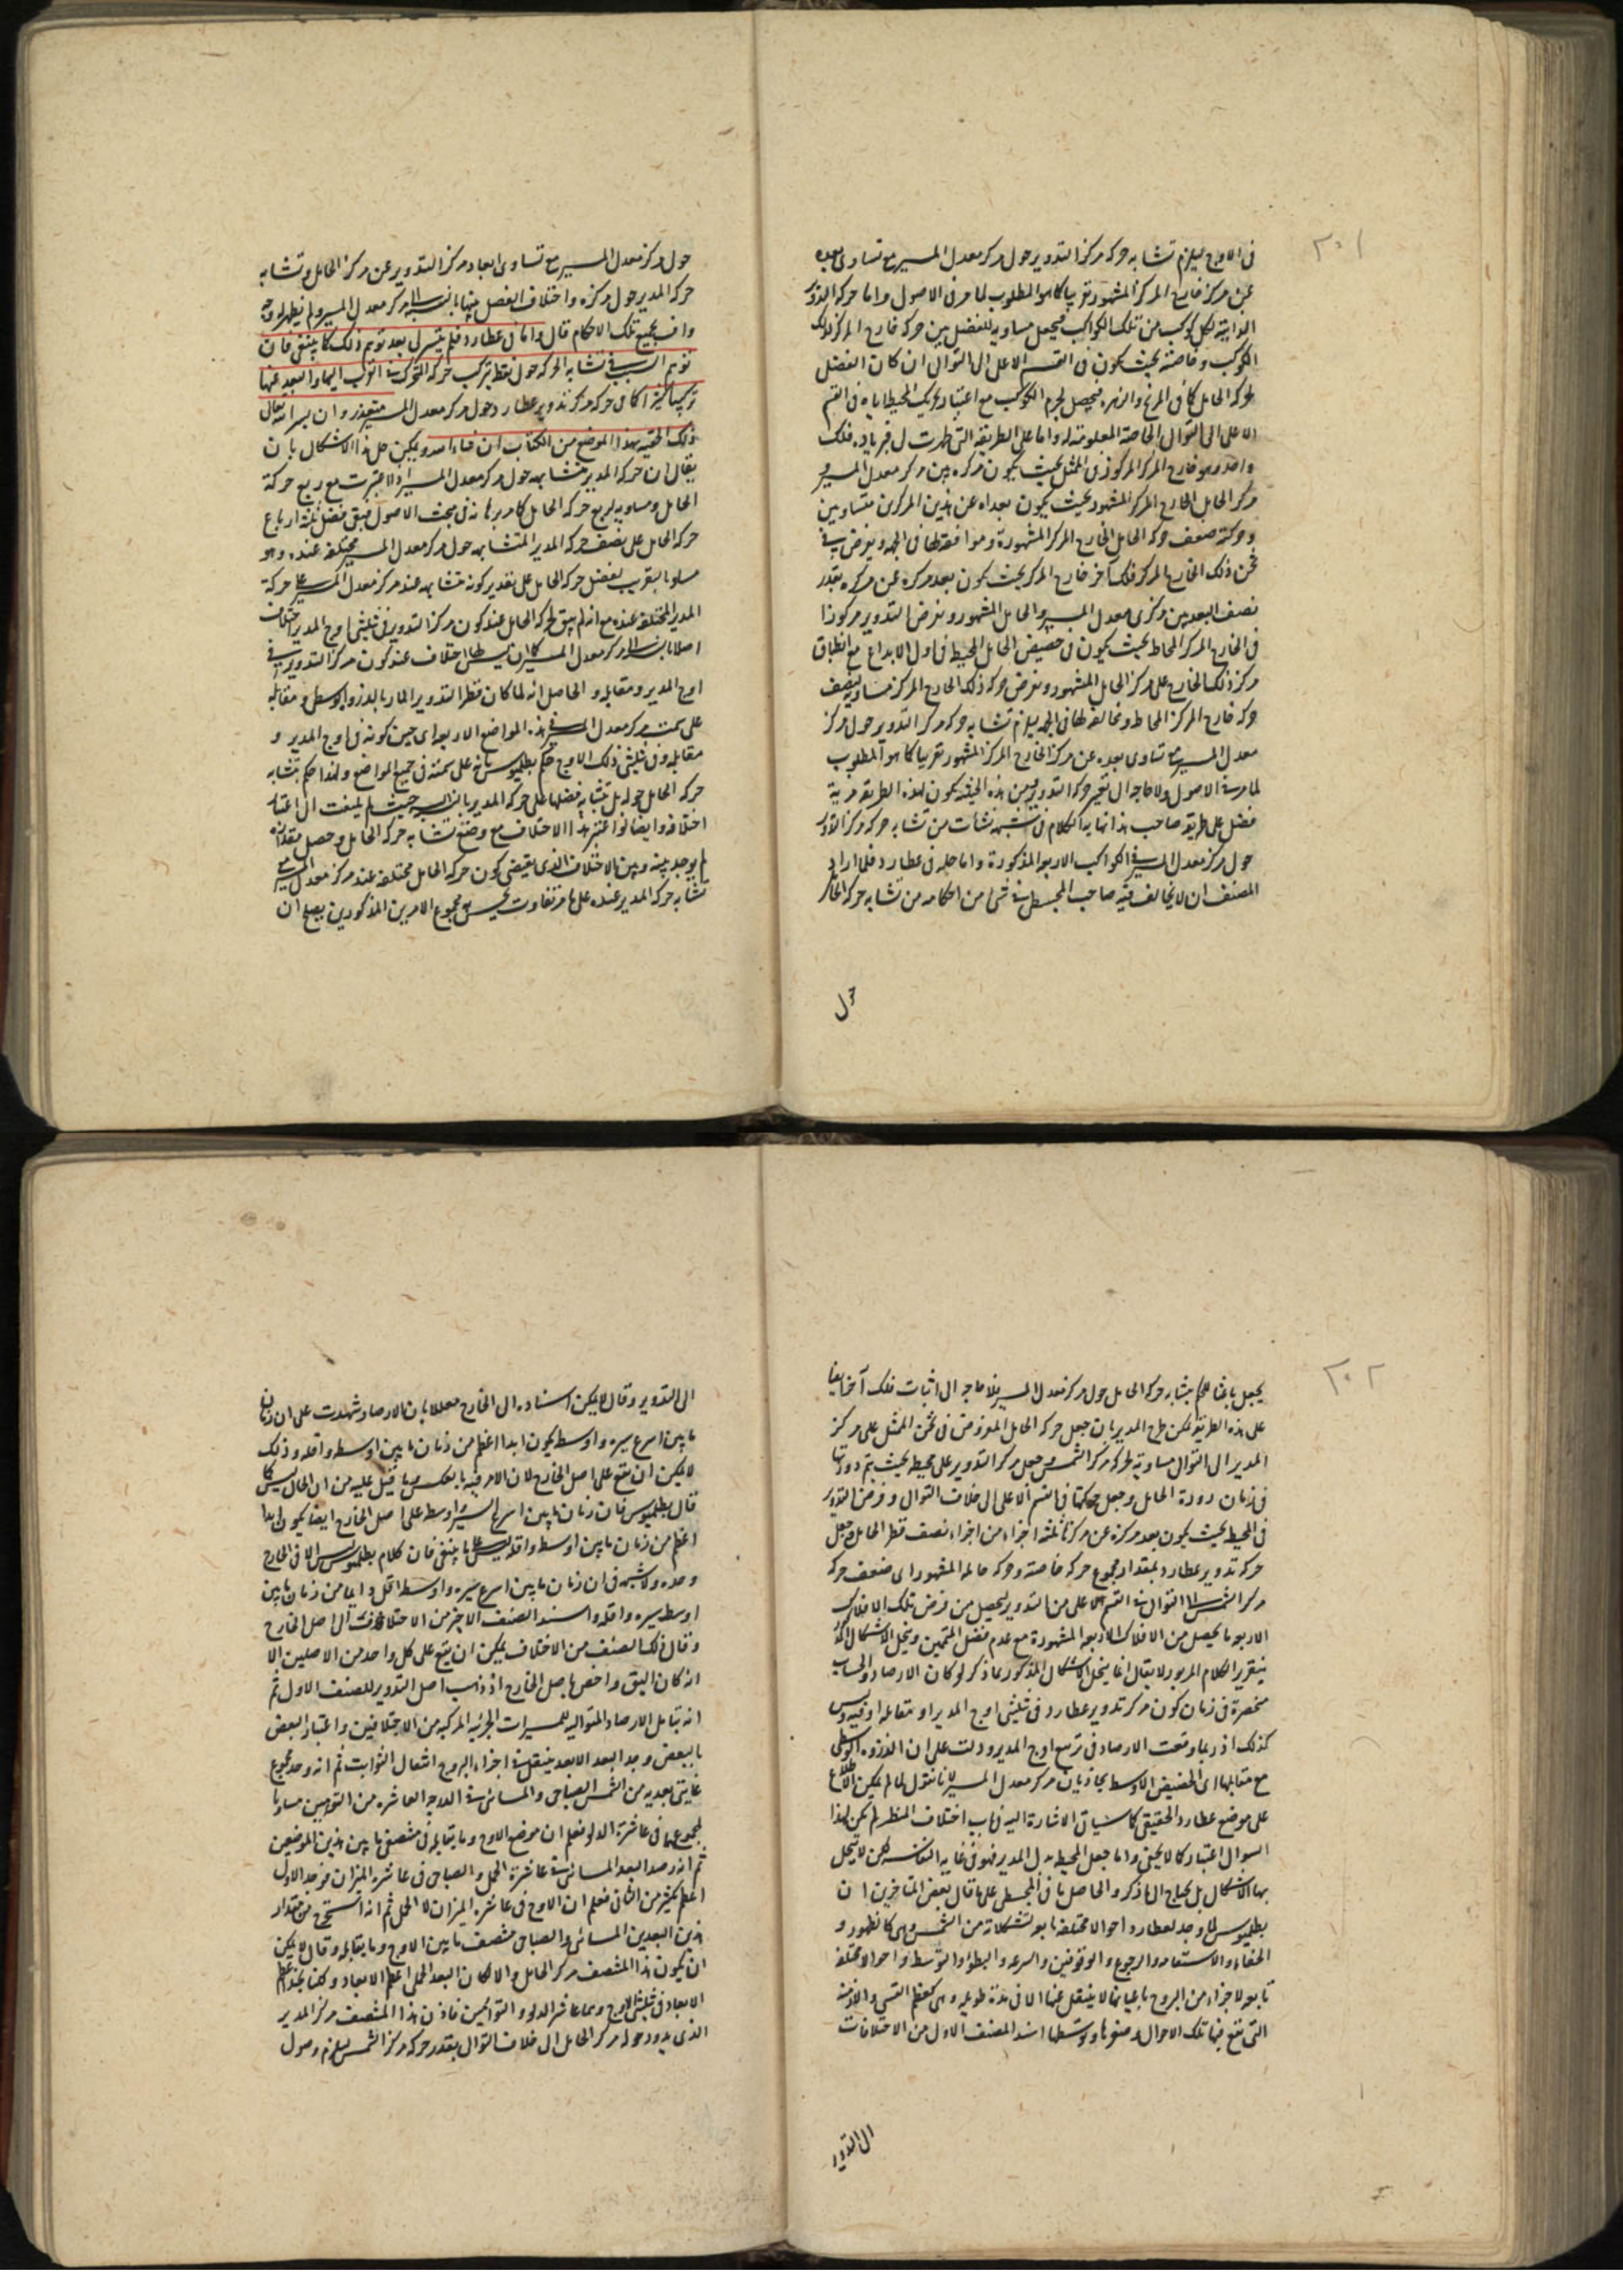 ٢٠١
فى الاوج فيلزم تشابه حركة مركز التدوير حول مركز معدل المسير مع تساوى بعده
عن مركز خارج المركز المشهور تقريبا كما هو المطلوب لما مر فى الاصول واما حركة التدوير
لكل كوكب من تلك الكواكب فيجعل مساوية للفضل بين حركة خارج المركز لذلك
الكوكب وخاصته بحيث يكون فى القسم الاعلى الى التوالى ان كان الفضل
لحركة الحامل كما فى المريخ والزهرة فيحصل لجرم الكوكب مع اعتبار تحريك المحيط اياه فى القسم
الاعلى الى التوالى الخاصة المعلومة له واما على الطريقة التى ظهرت لى فبزيادة فلك
واحد وهو خارج المركز المركوز فى الممثل بحيث يكون مركزه بين مركز معدل المسير و
مركز الحامل الخارج المركز المشهور بحيث يكون بعداه عن هذين المركزين متساويين
وحركته ضعف حركة الحامل الخارج المركز المشهورة وموافقة لها فى الجهة ويفرض فى
ثخن ذلك الخارج المركز فلك آخر خارج المركز بحيث يكون بعد مركزه عن مركزه بقدر
نصف البعد بين مركزى معدل المسير والحامل المشهور ويفرض التدوير مركوزا
فى الخارج المركز المحاط بحيث يكون فى حضيض الحامل المحيط فى اول الابداع مع انطباق
مركز ذلك الخارج على مركز الحامل المشهور ويفرض حركة ذلك الخارج المركز مساوية لنصف
حركة خارج المركز المحاط ومخالفة لها فى الجهة فيلزم تشابه حركة مركز التدوير حول مركز
معدل المسير مع تساوى بعده عن مركز الخارج المركز المشهور تقريبا كما هو المطلوب
لما مر فى الاصول ولا حاجة الى تغيير حركة التدوير ومن هذه الحيثية يكون لهذه الطريقة مزية
فضل على طريقة صاحب هذا نهاية الكلام فى شبهة نشأت من تشابه حركة مركز التدوير
حول مركز معدل المسير فى الكواكب الاربعة المذكورة واما حله فى عطارد فلما اراد
المصنف ان لا يخالف فيه صاحب المجسطى فى شىء من احكامه من تشابه حركة الحامل
حول
حول مركز معدل المسير مع تساوى ابعاد مركز التدوير عن مركز الحامل وتشابه
حركة المدير حول مركزه واختلاف الفصل بينهما بالنسبة الى مركز معدل المسير ولم يظهر له وجه
واف بجميع تلك الاحكام قال واما فى عطارد فلم يتيسر لى بعد توهم ذلك كما ينبغى فان
توهم السبب فى تشابه الحركة حول نقطة بتركب حركة المتحرك فى القرب اليها والبعد عنها
تركبا كثيرا كما فى حركة مركز تدوير عطارد حول مركز معدل المسير متعذر وان يسر الله تعالى
ذلك الحقته بهذا الموضع من الكتاب ان شاء الله ويمكن حل هذا الاشكال بان
يقال ان حركة المدير متشابهة حول مركز معدل المسير اذا اعتبرت مع ربع حركة
الحامل ومساوية لربع حركة الحامل كما مر برهانه فى بحث الاصول فيبقى فضل ثلثة ارباع
حركة الحامل على نصف حركة المدير المتشابهة حول مركز معدل المسير مختلفة عنده وهو
مساو بالتقريب لفضل حركة الحامل على تقدير كونه متشابهة عند مركز معدل المسير على حركة
المدير المختلفة عنده مع انه لم يبق لحركة الحامل عند كون مركز التدوير فى ثليثى اوج المدير اختلاف
اصلا بالنسبة الى مركز معدل المسير كما ان ليس لها اختلاف عند كون مركز التدوير فى
اوج المدير ومقابله والحاصل انه لما كان قطر التدوير المار بالذروة الوسطى ومقابلها
على سمت مركز معدل المسير فى هذه المواضع الاربعة اى حين كونه فى اوج المدير و
مقابله وفى ثليثى ذلك الاوج حكم بطلميوس بانه على سمته فى جميع المواضع ولهذا حكم بتشابه
حركة الحامل حوله بل بتشابه فضلها على حركة المدير بالنسبة اليه حيث لم يلتفت الى اعتبار
اختلافه وايضا لو اعتبر هذا الاختلاف مع وضع تشابه حركة الحامل وحصل مقداره
لم يوجد بينه وبين الاختلاف الذى يقتضى كون حركة الحامل مختلفة عند مركز معدل المسير مع
تشابه حركة المدير عنده على ما مر تفاوت محسوس مجموع الامرين المذكورين يصلح ان
٢٠٢
يجعل باعثا للحكم بتشابه حركة الحامل حول مركز معدل المسير فلا حاجة الى اثبات فلك آخر ايضا
على هذه الطريقة يمكن طرح المدير بان جعل حركة الحامل المفروض فى ثخن الممثل على مركز
المدير الى التوالى مساوية لحركة مركز الشمس وجعل مركز التدوير على محيطه بحيث يتم دورتها
فى زمان دورة الحامل وجعل حركتها فى القسم الاعلى الى خلاف التوالى وفرض التدوير
فى المحيط بحيث يكون بعد مركزه عن مركزها ثلثة اجزاء من اجزاء نصف قطر الحامل وجعل
حركة تدوير عطارد بمقدار مجموع حركة خاصته وحركة حامله المشهور اى ضعف حركة
مركز الشمس الى التوالى فى القسم الاعلى من التدوير ليحصل من فرض تلك الافلاك
الاربعة ما يحصل من الافلاك الاربعة المشهورة مع عدم فضل المتممين وينحل الاشكال المذكور
بتقرير الكلام المزبور لا يقال انما ينحل الاشكال المذكور بما ذكر لو كان الارصاد والحساب
منحصرة فى زمان كون مركز تدوير عطارد فى ثليثى اوج المدير او مقابله او فيه وليس
كذلك اذ ربما وقعت الارصاد فى تربيع اوج المدير ودلت على ان الذروة الوسطى
مع مقابلها اى الحضيض الاوسط يحاذيان مركز معدل المسير لانا نقول لما لم يمكن الاطلاع
على موضع عطارد الحقيقى كما سيأتى الاشارة اليه فى باب اختلاف المنظر لم يكن لهذا
السؤال اعتبار كما لا يخفى واما جعل المحيطة بدل المدير فهو فى غاية النفاسة لكن لا ينحل
بها الاشكال بل يحتاج الى ما ذكر والحاصل ما فى المجسطى على ما قال بعض المتأخرين ان
بطلميوس لما وجد لعطارد احوالا مختلفة تابعة لتشكلاته من الشمس وهى كالظهور و
الخفاء والاستقامة والرجوع والوقوفين والسرعة والبطؤ والتوسط واحوالا مختلفة
تابعة لاجزاء من البروج باعيانها لا ينتقل عنها الا فى مدة طويلة وهى كعظم القسى والازمنة
التى تقع فيها تلك الاحوال وصغرها وتوسطها اسند الصنف الاول من الاختلافات
الى التدوير
الى التدوير وقال لا يمكن اسناده الى الخارج معللا بان الارصاد شهدت على ان زمان
ما بين اسرع سيره واوسطه يكون ابدا اعظم من زمان ما بين اوسطه واقله وذلك
لا يمكن ان يقع على اصل الخارج لان الامر فيه بالعكس وما قيل عليه من ان الحال ليس كما
قال بطلميوس فان زمان ما بين اسرع السير واوسطه على اصل الخارج ايضا يكون ابدا
اعظم من زمان ما بين اوسطه واقله ليس على ما ينبغى فان كلام بطلميوس ليس الا فى الخارج
وحده ولا شبهة فى ان زمان ما بين اسرع سيره واوسطه اقل دائما من زمان ما بين
اوسط سيره واقله واسند الصنف الاخر من الاختلافات الى اصل الخارج
وقال ذلك الصنف من الاختلاف يمكن ان يقع على كل واحد من الاصلين الا
انه كان اليق واخص باصل الخارج اذ ذهب اصل التدوير للصنف الاول ثم
انه بتأمل الارصاد المتوالية للمسيرات الجزئية المركبة من الاختلافين واعتبار البعض
بالبعض وجد البعد الابعد ينتقل فى اجزاء البروج انتقال الثوابت ثم انه وجد مجموع
غايتى بعديه من الشمس الصباحى والمسائى فى الدرجة العاشرة من التوأمين مساويا
لمجموعهما فى عاشرة الدلو فعلم ان موضع الاوج وما يقابله فى منتصفى ما بين هذين الموضعين
ثم انه رصد البعد المسائى فى عاشرة الحمل والصباحى فى عاشرة الميزان فوجد الاول
اعظم بكثير من الثانى فعلم ان الاوج فى عاشرة الميزان لا الحمل ثم انه استخرج من مقدار
هذين البعدين المسائى والصباحى منتصف ما بين الاوج وما يقابله وقال لا يمكن
ان يكون هذا المنتصف مركز الحامل والا لكان البعد الحملى اعظم الابعاد وكنا نجد اعظم
الابعاد فى ثليثى الاوج وهما عاشر الدلو والتوأمين فاذن هذا المنتصف مركز المدير
الذى يدور حوله مركز الحامل الى خلاف التوالى بقدر حركة مركز الشمس ليلزم وصول